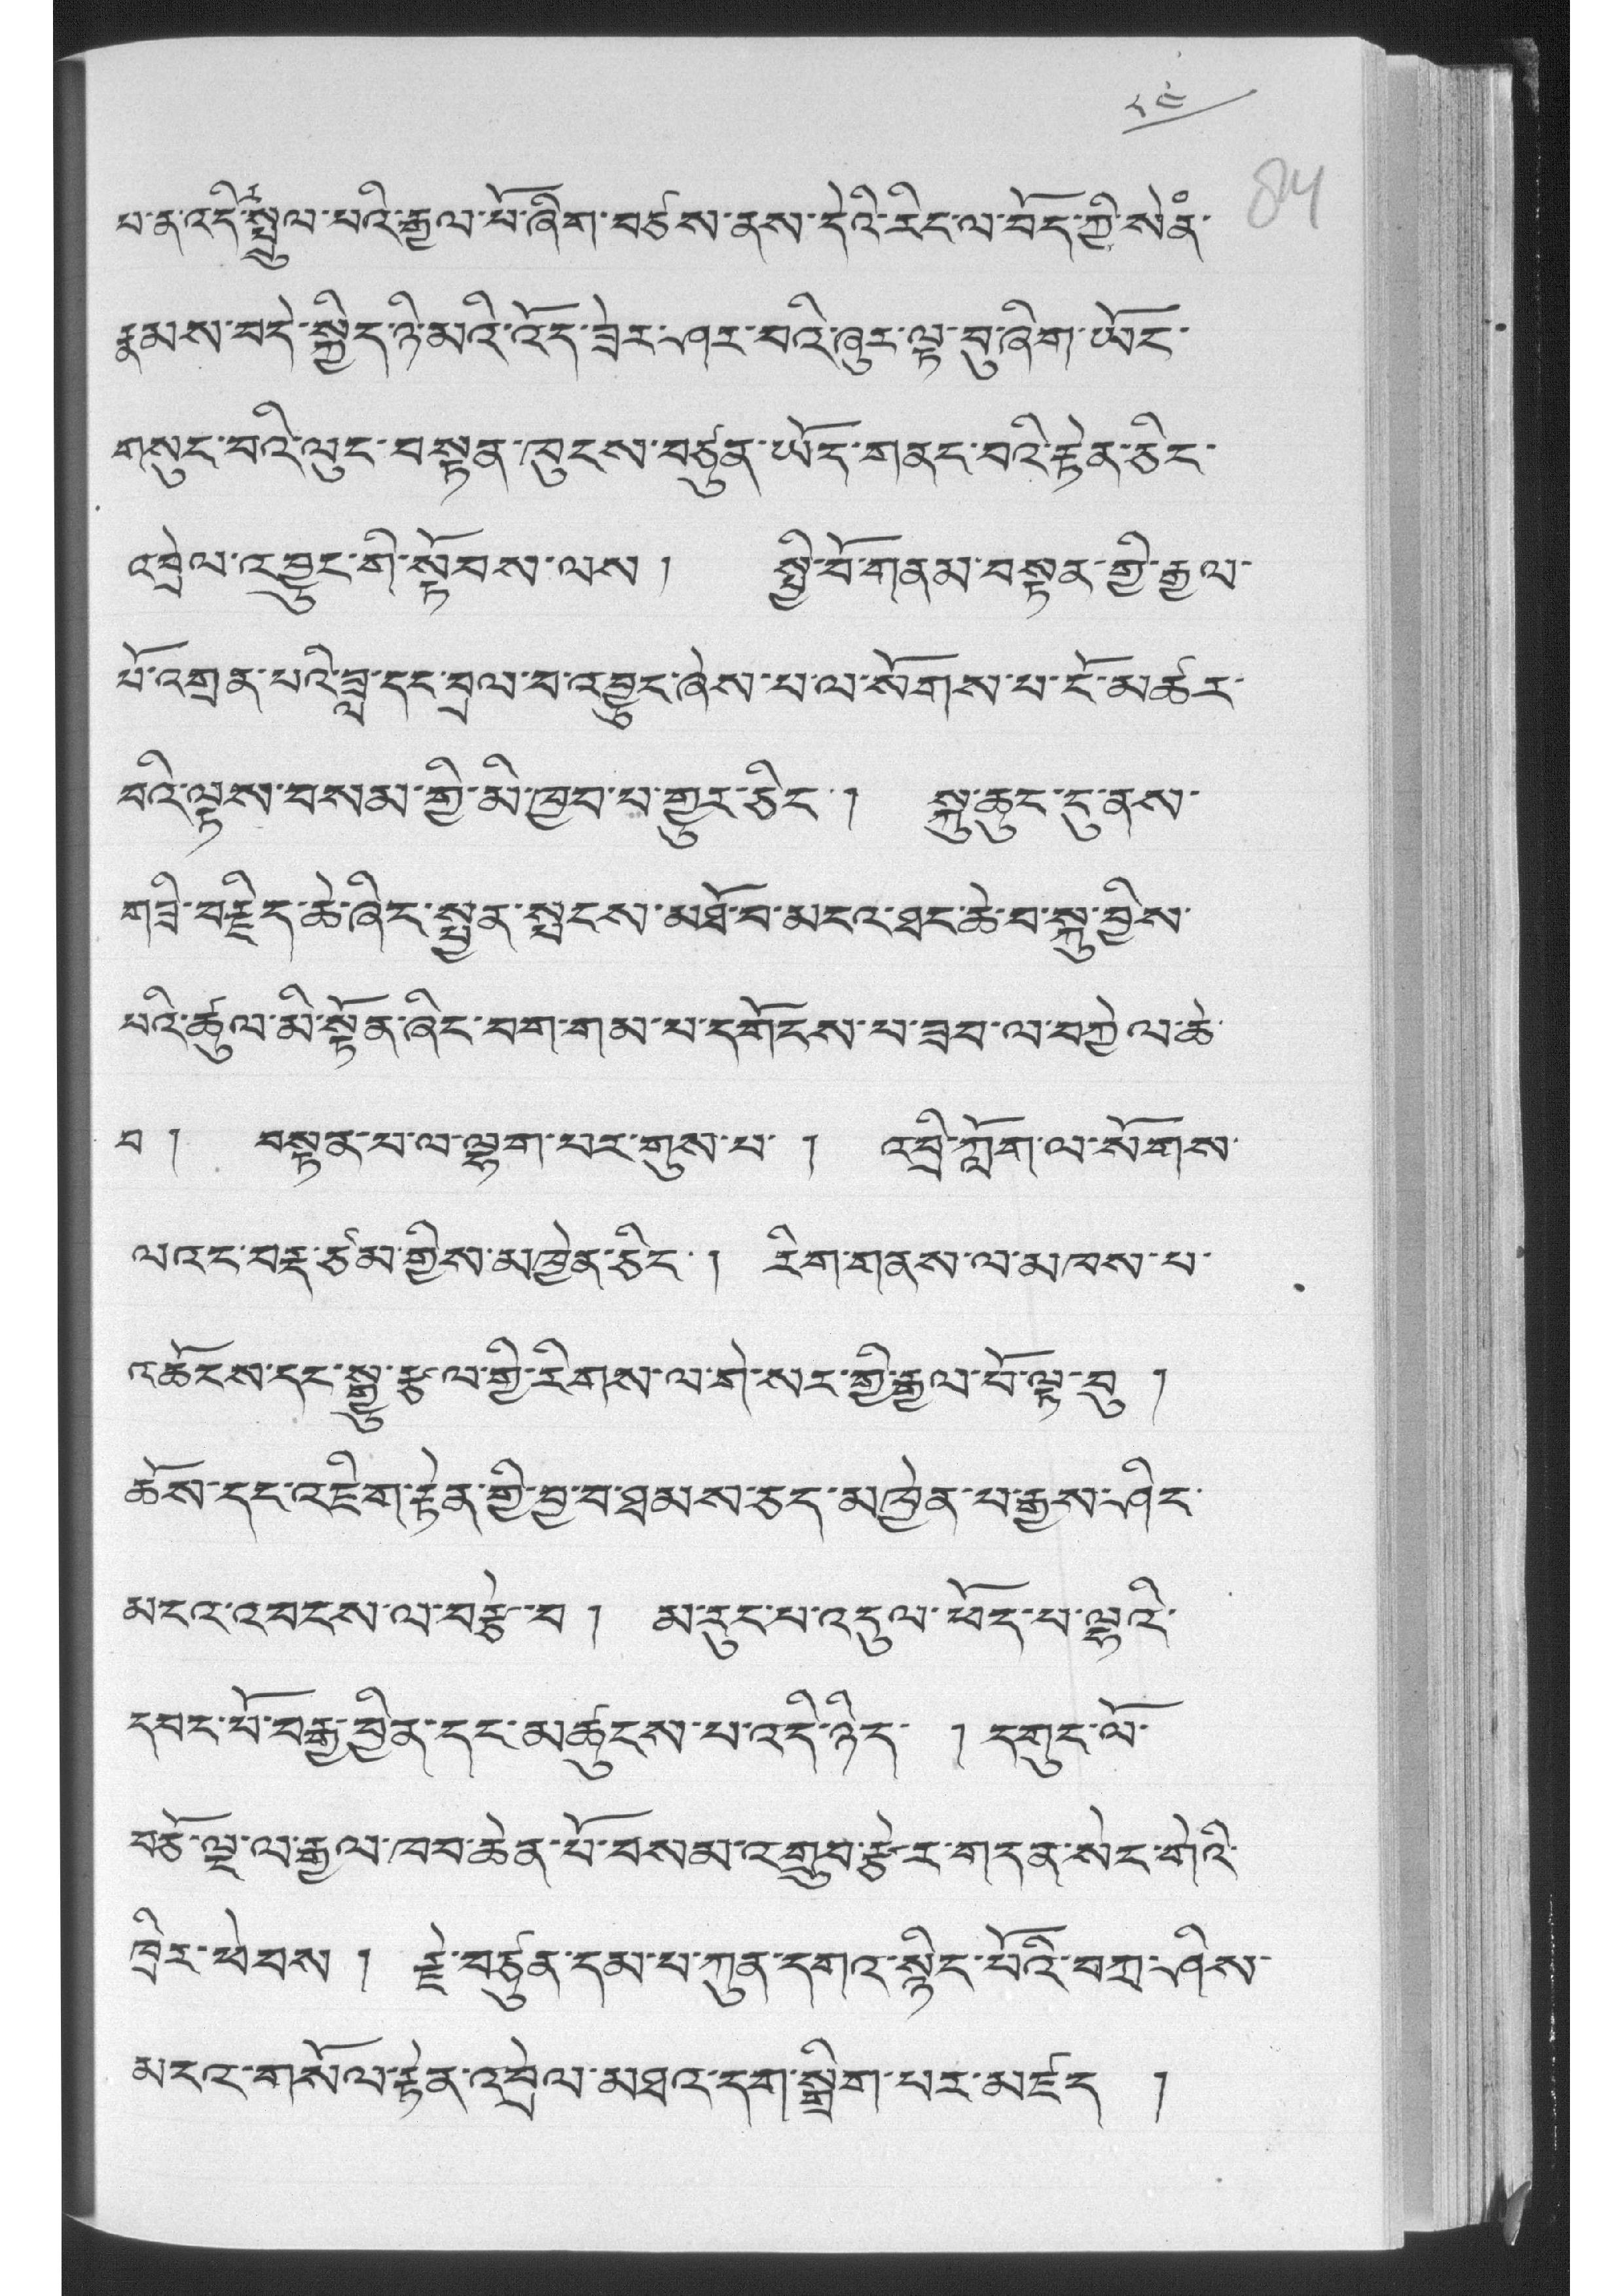 ༨༤
84
པ་ན་འདི་སྤྲུལ་པའི་རྒྱལ་པོ་ཞིག་བཙས་ནས་དེའི་རིང་ལ་བོད་ཀྱི་སེནཾ་
རྣམས་བདེ་སྐྱིད་ཉི་མའི་འོད་ཟེར་ཤར་བའི་ཞུར་ལྟ་བུ་ཞིག་ཡོང་
གསུང་བའི་ལུང་བསྟན་ཁུངས་བཙུན་ཡོད་གནད་བའི་རྟེན་ཅིང་
འབྲེལ་འབྱུང་གི་སྟོབས་ལས། སྤྱི་བོ་གནམ་བསྟན་གྱི་རྒྱལ་
པོ་འགྲན་པའི་ཟླ་དང་བྲལ་བ་འབྱུང་ཞེས་པ་ལ་སོགས་པ་ངོ་མཚར་
བའི་ལྟས་བསམ་གྱི་མི་ཁྱབ་པ་གྱུར་ཅིང་། སྐུ་ཆུང་དུ་ནས་
གཟི་བརྗིད་ཆེ་ཞིང་སྤྱན་སྤངས་མཐོ་བ་མངའ་ཐང་ཆེ་བ་སྐུ་བྱིས་
པའི་ཚུལ་མི་སྟོན་ཞིང་བག་གམ་པ་དགོངས་པ་ཟབ་ལ་བཀྱེལ་ཆེ་
བ། བསྟན་པ་ལ་ལྷག་པར་གུས་པ་། འབྲི་ཀློག་ལ་སོགས་
ལའང་བརྡ་ཙམ་གྱིས་མཁྱེན་ཅིང་། རིག་གནས་ལ་མཁས་པ་
འཆོངས་དང་སྒྱུ་རྩལ་གྱི་རིགས་ལ་གེ་སར་གྱི་རྒྱལ་པོ་ལྟ་བུ།
ཆོས་དང་འཇིག་རྟེན་གྱི་བྱ་བ་ཐམས་ཅད་མཁྱེན་པ་རྒྱས་ཤིང་
མངའ་འབངས་ལ་བརྩེ་བ། མ་རུང་པ་འདུལ་ཕོད་པ་ལྷའི་
དབང་པོ་བརྒྱ་བྱིན་དང་མཚུངས་པ་འདི་ཉིད་། དགུང་ལོ་
བཅོ་ལྔ་ལ་རྒྱལ་ཁབ་ཆེན་པོ་བསམ་འགྲུབ་རྩེར་གདན་སེང་གེའི་
ཁྲིར་ཕེབས། རྗེ་བཙུན་དམ་པ་ཀུན་དགའ་སྙིང་པོའི་བཀྲ་ཤིས་
མངའ་གསོལ་རྟེན་འབྲེལ་མཐའ་དག་སྒྲིག་པར་མཛད།